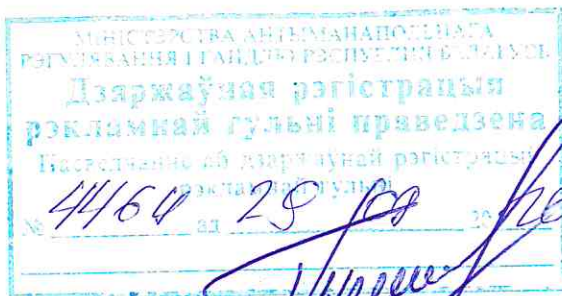 МІНІСТЭРСТВА АНТЫМАНАПОЛЬНАГА
РЭГУЛЯВАННЯ І ГАНДЛЮ РЭСПУБЛІКІ БЕЛАРУСЬ
Дзяржаўная рэгістрацыя
рэкламнай гульні праведзена
Пасведчанне аб дзяржаўнай рэгістрацыі
рэкламнай гульні
№ 4464 ад 20